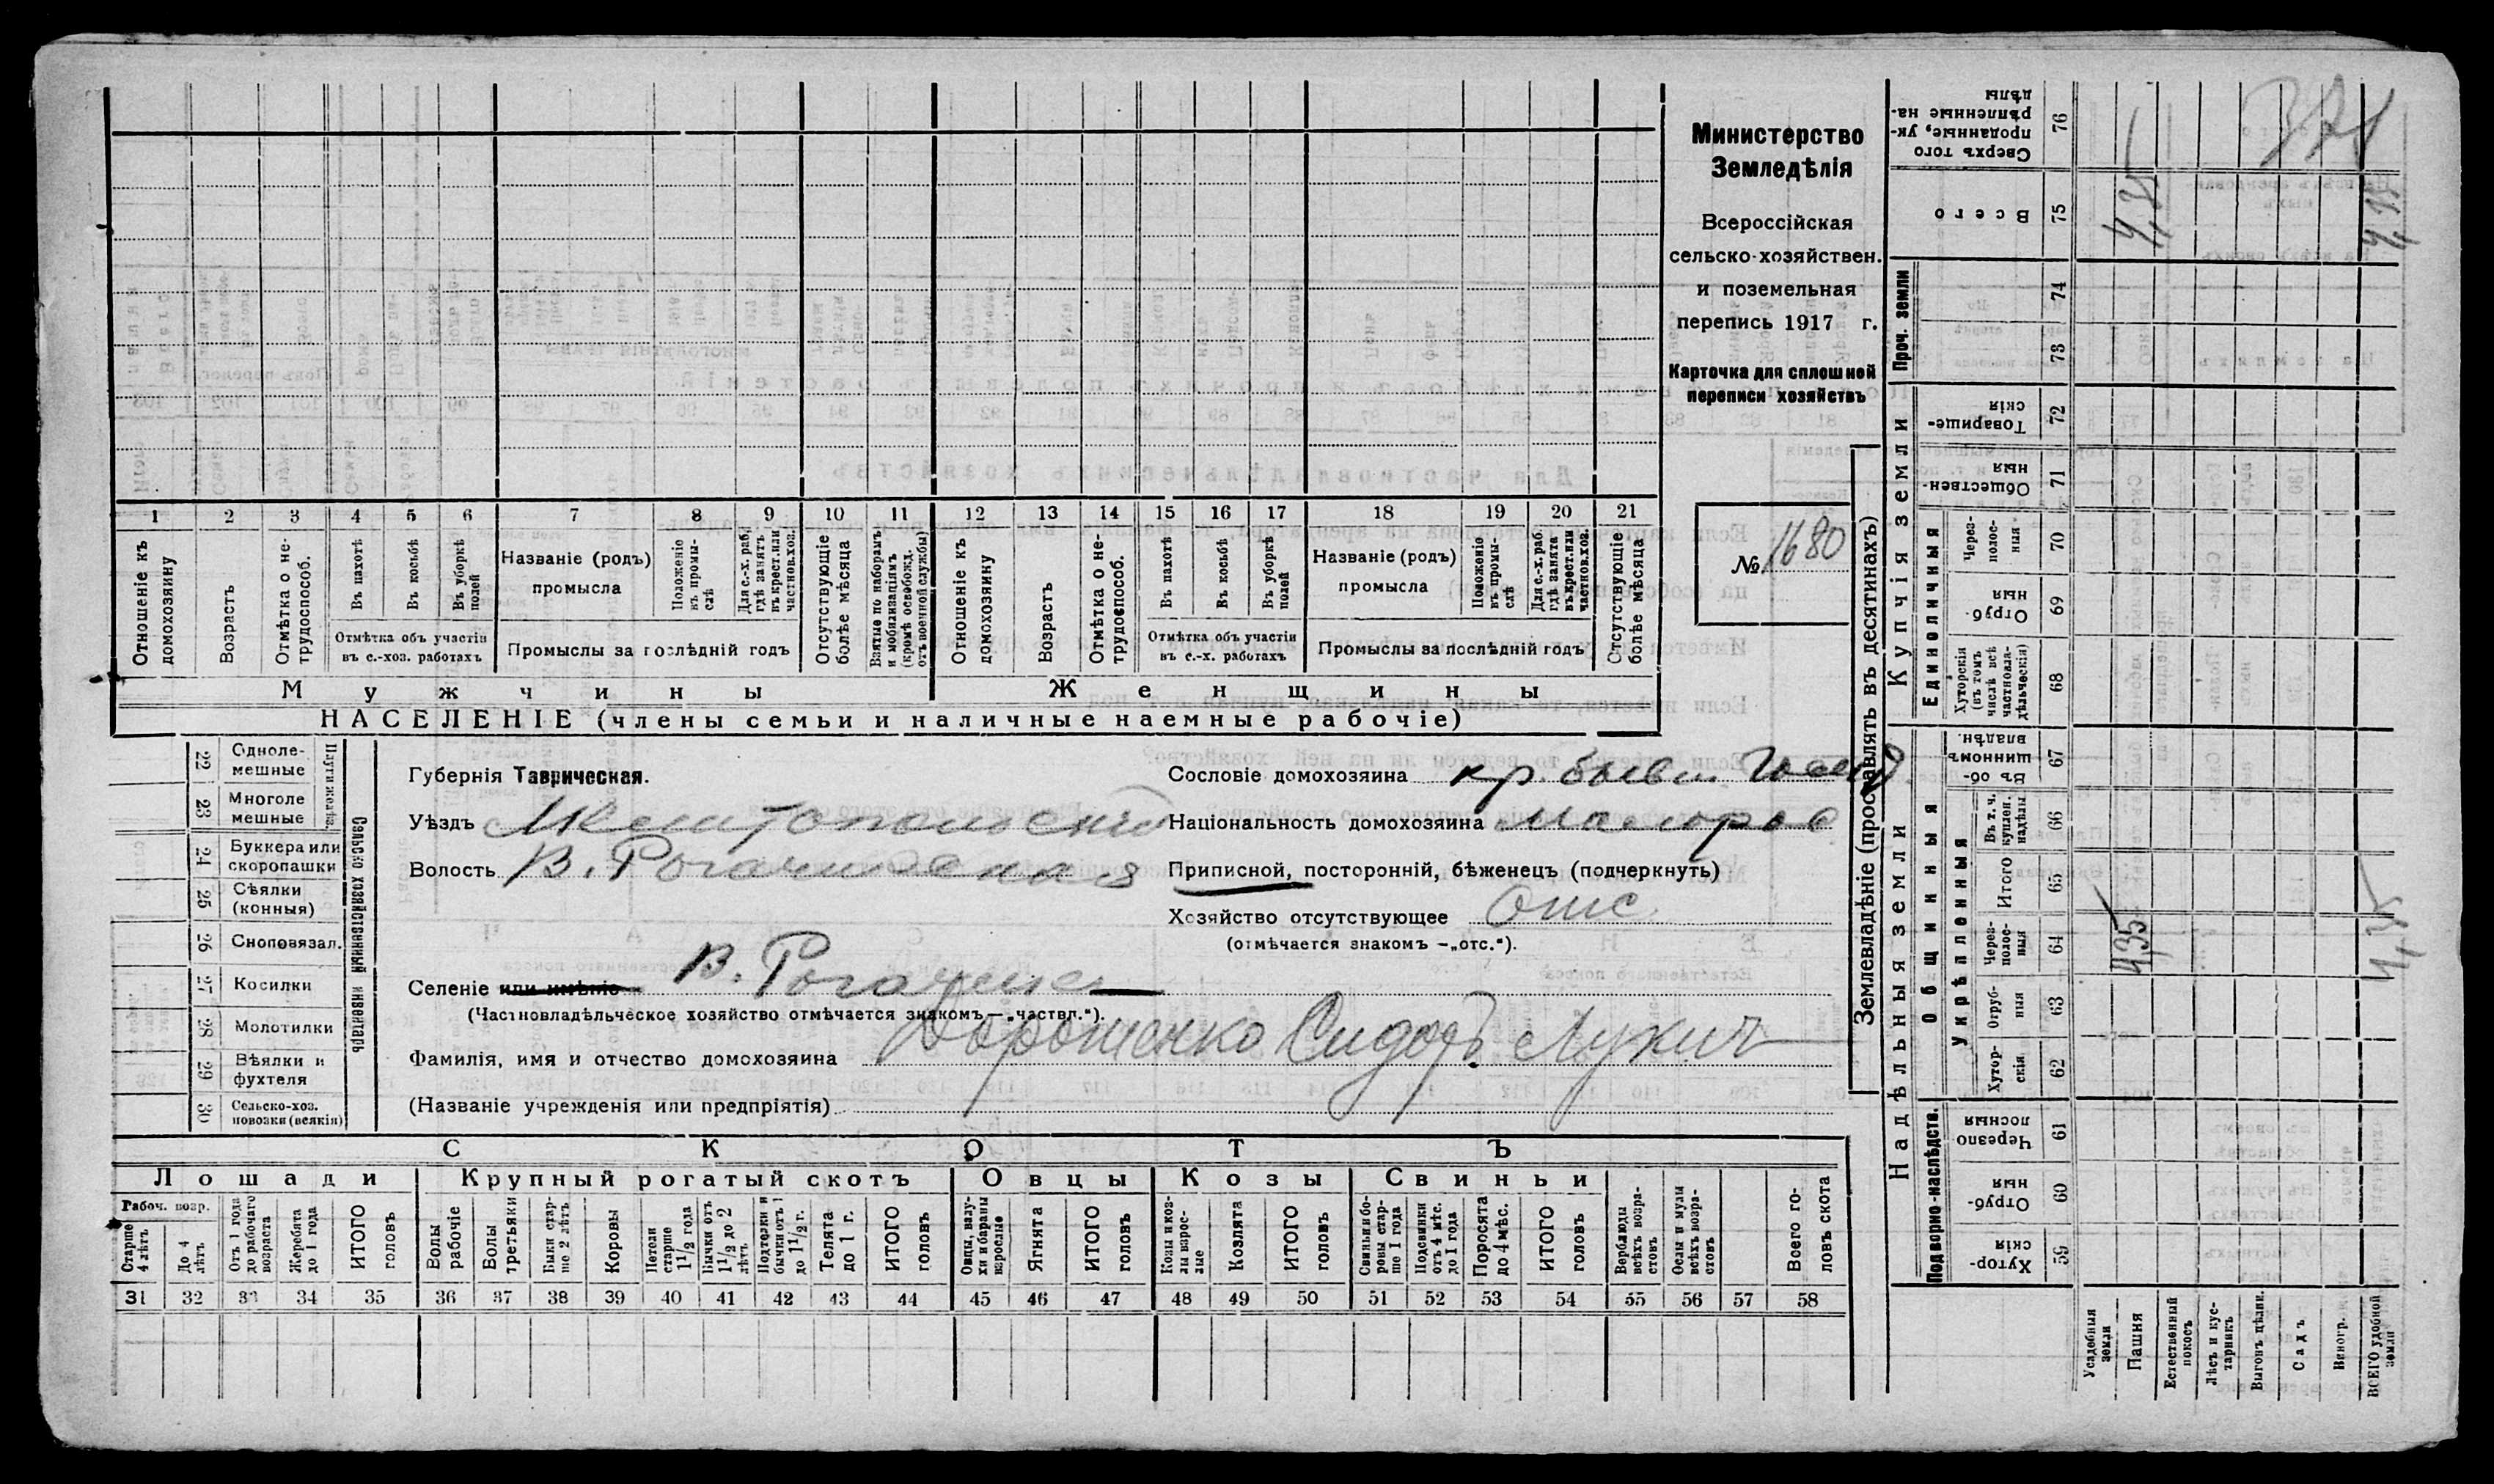 Министерство
Земледѣлія
Всероссійская
сельско-хозяйствен.
и поземельная
перепись 1917 г.
Карточка для сплошной
переписи хозяйствъ
№ 1680
1 2 3 4 5 6 7 8 9 10 11 12 13 14 15 16 17 18 19 20 21
Отношеніе къ домохозяину
Возрастъ
Отмѣтка о не-трудоспособ.
Въ пахотѣ
Въ косьбѣ
Въ уборкѣ полей
Отмѣтка объ участіи въ с.-хоз. работахъ
Названіе (родъ) промысла
Положеніе въ промы-слѣ
Для с.-х. раб. гдѣ занятъ въ крест. или частнов. хоз.
Промыслы за послѣдній годъ
Отсутствующіе болѣе мѣсяца
Взятые по наборамъ и мобилизаціямъ (кромѣ освобожд. отъ военной службы)
Отношеніе къ домохозяину
Возрастъ
Отмѣтка о не-трудоспособ.
Въ пахотѣ
Въ косьбѣ
Въ уборкѣ полей
Отмѣтка объ участіи въ с.-х. работахъ
Названіе (родъ) промысла
Положеніе въ промы-слѣ
Для с.-х. раб. гдѣ занята въ крест. или частнов. хоз.
Промыслы за послѣдній годъ
Отсутствующіе болѣе мѣсяца
Мужчины
Женщины
НАСЕЛЕНІЕ (члены семьи и наличные наемные рабочіе)
Сельско хозяйственный инвентарь
Плуги желѣз.
22 Одноле-мешные
23 Многоле мешные
24 Буккера или скоропашки
25 Сѣялки (конныя)
26 Сноповязал.
27 Косилки
28 Молотилки
29 Вѣялки и фухтеля
30 Сельско-хоз. повозки (всякія)
Губернія Таврическая.
Уѣздъ Мелитопольскій
Волость В. Рогачикская
Селеніе или имѣніе В. Рогачик
(Частновладѣльческое хозяйство отмѣчается знакомъ—„частвл.“).
Фамилія, имя и отчество домохозяина Дорошенко Сидоръ Лукич
(Названіе учрежденія или предпріятія)
Сословіе домохозяина кр. бывш.
Національность домохозяина Малорос
Приписной, посторонній, бѣженец (подчеркнуть)
Хозяйство отсутствующее Отс
(отмѣчается знакомъ —„отс.“).
СКОТЪ
Лошади
Крупный рогатый скотъ
Овцы
Козы
Свиньи
Рабоч. возр.
Старше 4 лѣтъ
До 4 лѣтъ
Отъ 1 года до рабочаго возраста
Жеребята до 1 года
ИТОГО головъ
Волы рабочіе
Волы третьяки
Быки стар-ше 2 лѣтъ
Коровы
Нетели старше 1 1/2 года
Бычки отъ 1 1/2 до 2 лѣтъ
Подтелки и бычки отъ 1 до 1 1/2 г.
Телята до 1 г.
ИТОГО головъ
Овцы, валу-хи и бараны взрослые
Ягнята
ИТОГО головъ
Козы и коз-лы взрос-лые
Козлята
ИТОГО головъ
Свиньи и бо-ровы стар-ше 1 года
Подсвинки отъ 4 мѣс. до 1 года
Поросята до 4 мѣс.
ИТОГО головъ
Верблюды всѣхъ возра-стовъ
Ослы и мулы всѣхъ возра-стовъ
Всего го-ловъ скота
31 32 33 34 35 36 37 38 39 40 41 42 43 44 45 46 47 48 49 50 51 52 53 54 55 56 57 58
Землевладѣніе (проставлять въ десятинахъ)
Надѣльныя земли
Купчія земли
Проч. земли
Подворно-наслѣдств.
Общинныя
Укрѣпленныя
Единоличныя
Хутор-скія 59
Отруб-ныя 60
Черезпо лосныя 61
Хутор-скія 62
Отруб-ныя 63
Через-полос-ныя 64
Итого 65
Въ т. ч. куплен. надѣлы 66
Въ об-щинномъ владѣн. 67
Хуторскія (въ томъ числѣ всѣ частновла-дѣльческія) 68
Отруб-ныя 69
Через-полос-ныя 70
Обществен-ныя 71
Товарище-скія 72
73
74
Всего 75
Сверхъ того проданные, ук-рѣпленные на-дѣлы 76
Усадебныя земли
Пашня
Естественный покосъ
Лѣсъ и кус-тарникъ
Выгонъ цѣлин.
Садъ
Виногр.
ВСЕГО удобной земли
4,35
4,35
4,35
4,35
371